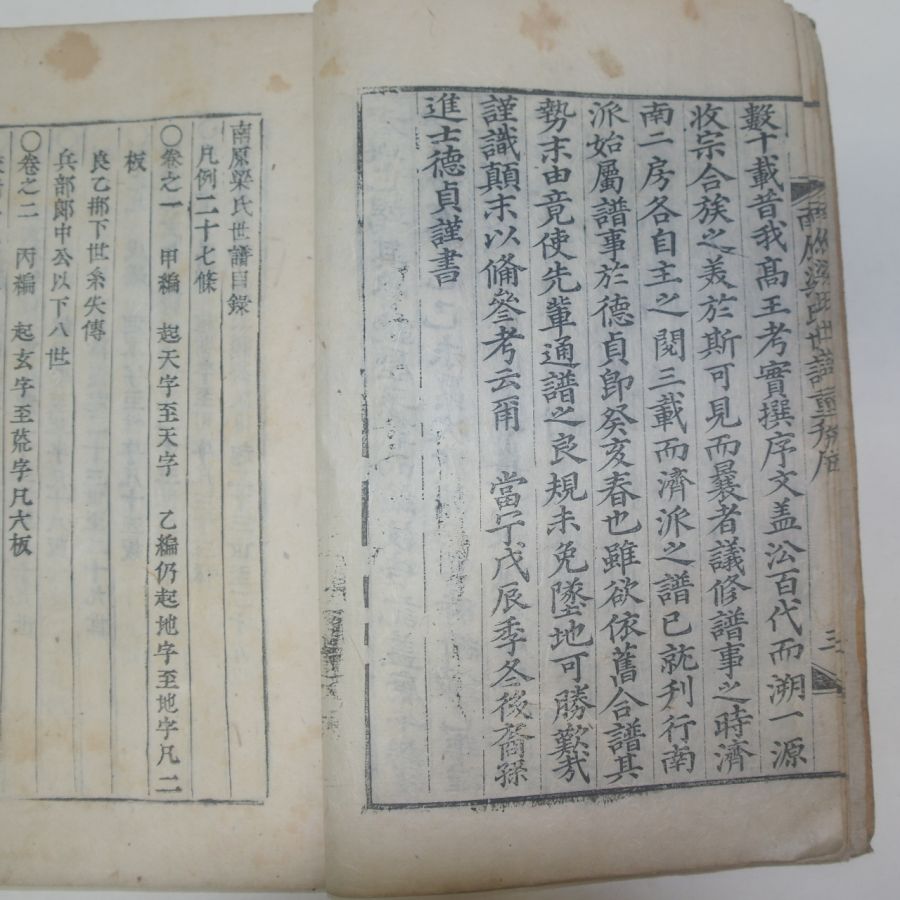 南原梁氏世譜重修序
三
數十載昔我髙王考實撰序文盖㳂百代而溯一源
收宗合族之美於斯可見而曩者議修譜事之時濟
南二房各自主之閱三載而濟派之譜已就刋行南
派始屬譜事於德貞卽癸亥春也雖欲依舊合譜其
勢末由竟使先輩通譜之良規未免墜地可勝歎㢤
謹識顛末以俻參考云爾 當宁戊辰季冬後裔孫
進士德貞謹書
南原梁氏世譜目錄
○凡例二十七條
○卷之一 甲編 起天字至天字 乙編仍起地字至地字凡二
板
良乙那下世系失傳
兵部郞中公以下八世
○卷之二 丙編 起玄字至荒字凡六板